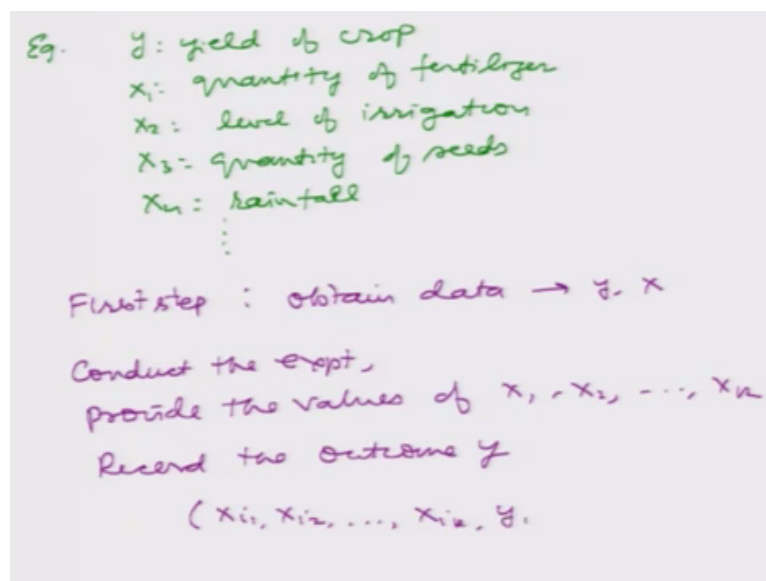 Eg. y: yield of crop
x₁: quantity of fertilizer
x₂: level of irrigation
x₃: quantity of seeds
x₄: rainfall
⋮
First step : obtain data → y, x
Conduct the expt,
provide the values of x₁, x₂, ..., xₖ
Record the outcome y
(xᵢ₁, xᵢ₂, ..., xᵢₖ, y.